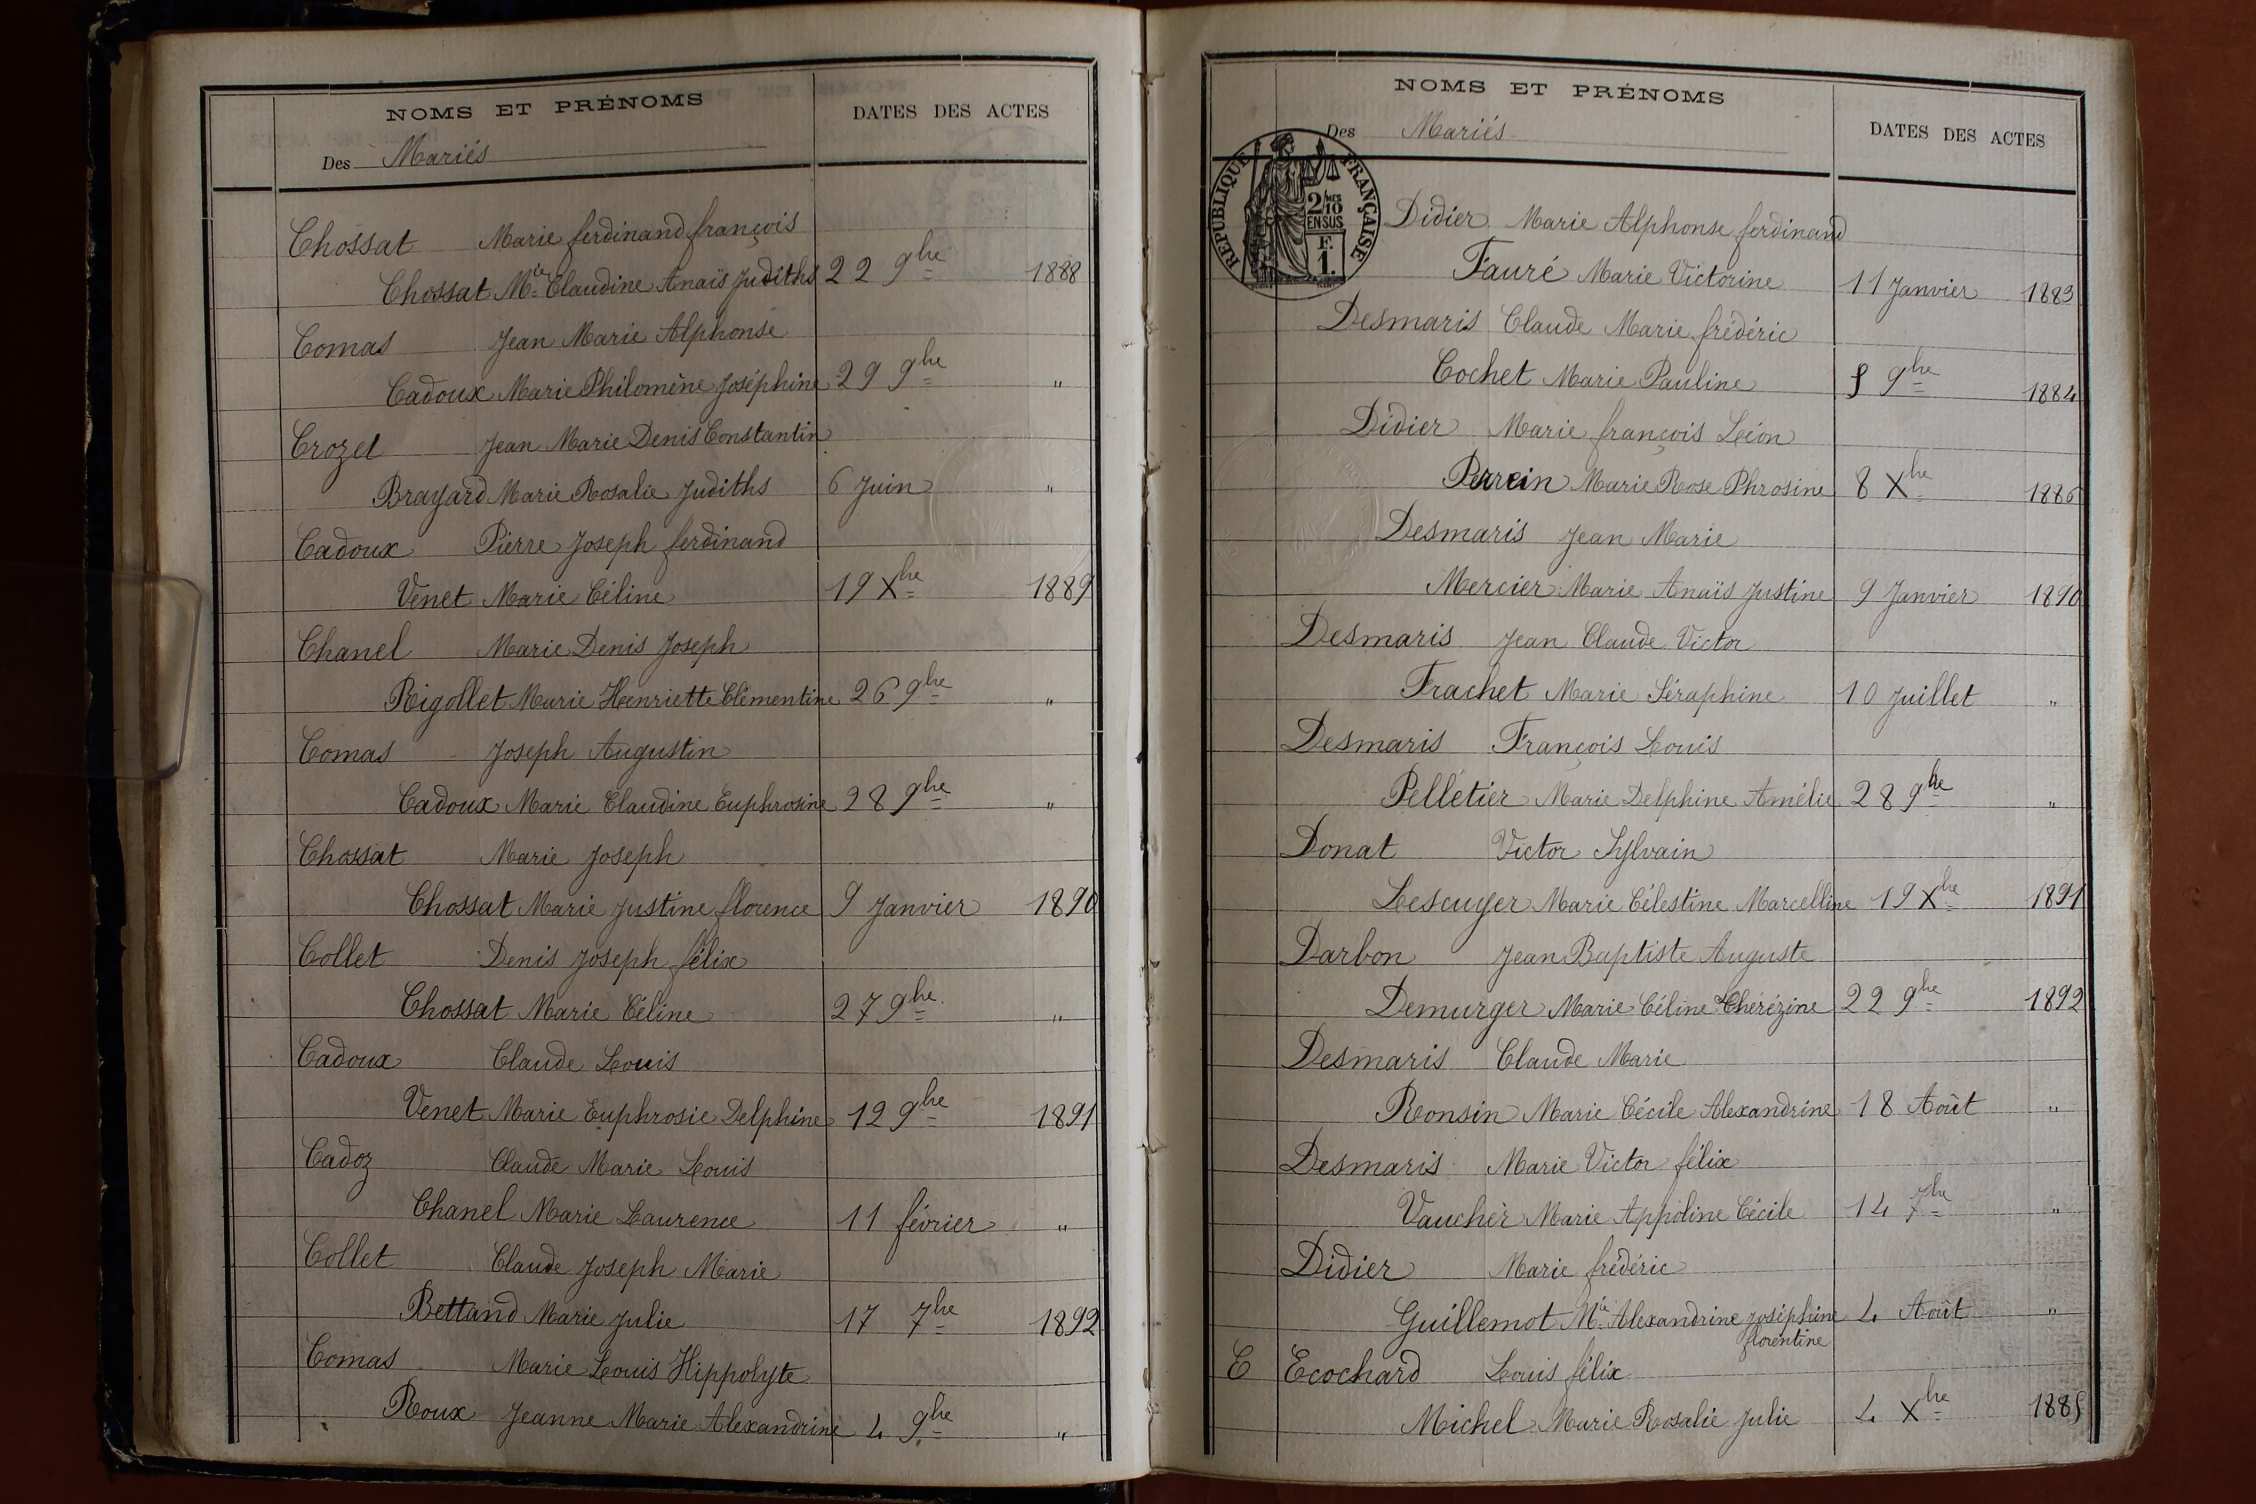 NOMS ET PRÉNOMS
DATES DES ACTES
Des Mariés
Chossat Marie ferdinand françois
Chossat Mie Claudine Anaïs Judiths 22 9bre 1888
Comas Jean Marie Alphonse
Cadoux Marie Philomène Joséphine 29 9bre "
Crozet Jean Marie Denis Constantin
Brayard Marie Rosalie Judiths 6 Juin "
Cadoux Pierre Joseph ferdinand
Venet Marie Céline 19 Xbre 1889
Chanel Marie Denis Joseph
Rigollet Marie Henriette Clémentine 26 9bre "
Comas Joseph Augustin
Cadoux Marie Claudine Euphrosine 28 9bre "
Chossat Marie Joseph
Chossat Marie Justine florence 9 Janvier 1890
Collet Denis Joseph félix
Chossat Marie Céline 27 9bre "
Cadoux Claude Louis
Venet Marie Euphrosie Delphine 12 9bre 1891
Cadoz Claude Marie Louis
Chanel Marie Laurence 11 février "
Collet Claude Joseph Marie
Bettand Marie Julie 17 7bre 1892
Comas Marie Louis Hippolyte
Roux Jeanne Marie Alexandrine 4 9bre "
NOMS ET PRÉNOMS
DATES DES ACTES
Des Mariés
RÉPUBLIQUE FRANÇAISE
2/10
EN SUS
F.
1.
Didier Marie Alphonse ferdinand
Fauré Marie Victorine 11 Janvier 1883
Desmaris Claude Marie frédéric
Cochet Marie Pauline 5 9bre 1884
Didier Marie françois Léon
Perrein Marie Rose Phrosine 8 Xbre 1886
Desmaris Jean Marie
Mercier Marie Anaïs Justine 9 Janvier 1890
Desmaris Jean Claude Victor
Frachet Marie Séraphine 10 Juillet "
Desmaris François Louis
Pelletier Marie Delphine Amélie 28 9bre "
Donat Victor Sylvain
Lescuyer Marie Célestine Marcelline 19 Xbre 1891
Darbon Jean Baptiste Auguste
Demurger Marie Céline Thérézine 22 9bre 1892
Desmaris Claude Marie
Ronsin Marie Cécile Alexandrine 18 Août "
Desmaris Marie Victor félix
Vaucher Marie Appoline Cécile 14 7bre "
Didier Marie frédéric
Guillemot Mie Alexandrine Joséphine 4 Août "
florentine
E Ecochard Louis félix
Michel Marie Rosalie Julie 4 Xbre 1885